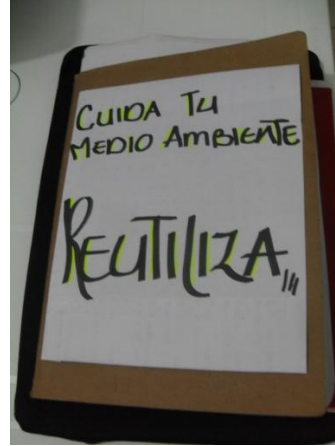 CUIDA TU
MEDIO AMBIENTE
REUTILIZA,,,